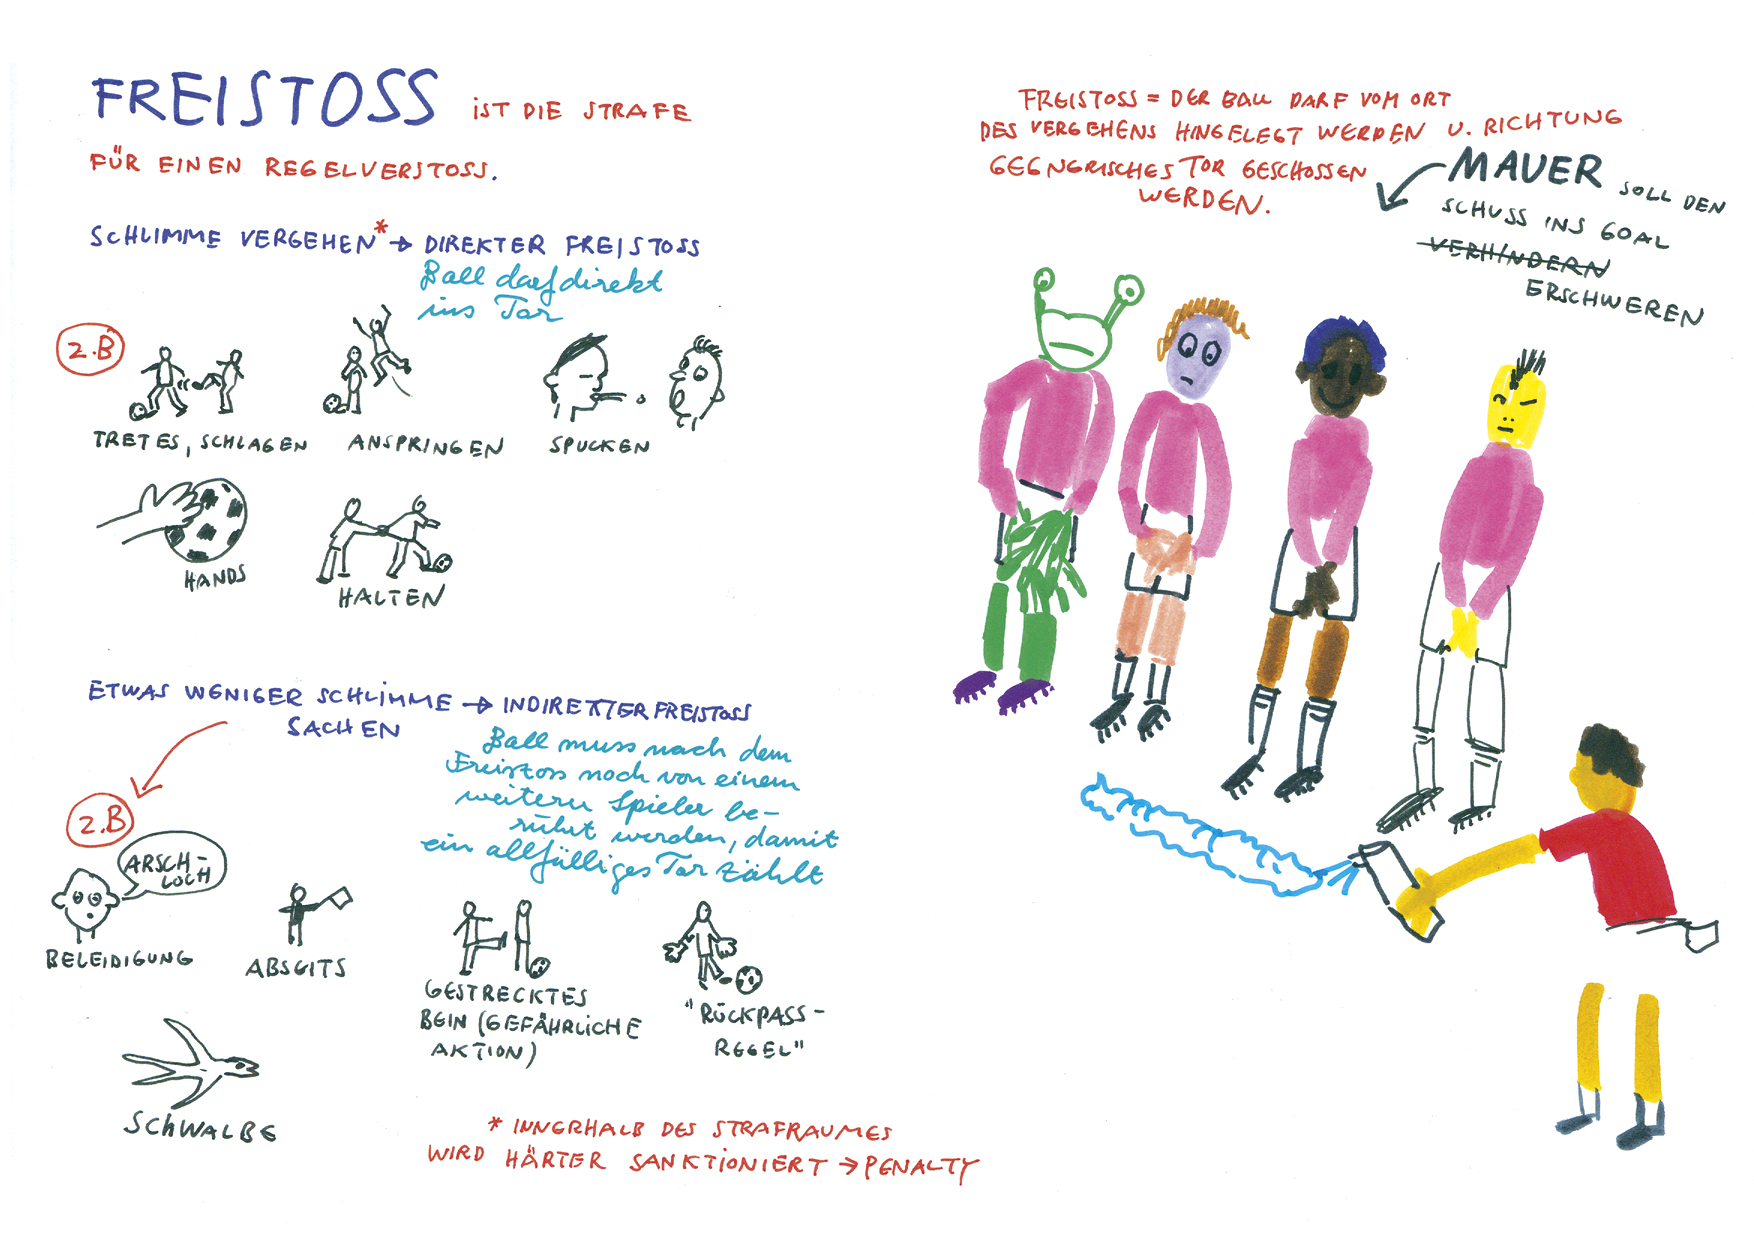 FREISTOSS iST DIE STRAFE
FÜR EINEN REGELVERSTOSS.
SCHLIMME VERGEHEN* → DIREKTER FREISTOSS
Ball darf direkt
ins Tor
Z.B
TRETES, SCHLAGEN
ANSPRINGEN
SPUCKEN
HANDS
HALTEN
ETWAS WENIGER SCHLIMME → INDIREKTER FREISTOSS
SACHEN
Ball muss nach dem
Freistoss noch von einem
weitern Spieler be-
rührt werden, damit
ein allfälliges Tor zählt
Z.B
ARSCH-
LOCH
BELEIDIGUNG
ABSEITS
GESTRECKTES
BEIN (GEFÄHRLICHE
AKTION)
"RÜCKPASS-
REGEL"
SCHWALBE
* INNERHALB DES STRAFRAUMES
WIRD HÄRTER SANKTIONIERT → PENALTY
FREISTOSS = DER BALL DARF VOM ORT
DES VERGEHENS HINGELEGT WERDEN U. RICHTUNG
GEGNERISCHES TOR GESCHOSSEN
WERDEN.
MAUER SOLL DEN
SCHUSS INS GOAL
VERHINDERN
ERSCHWEREN